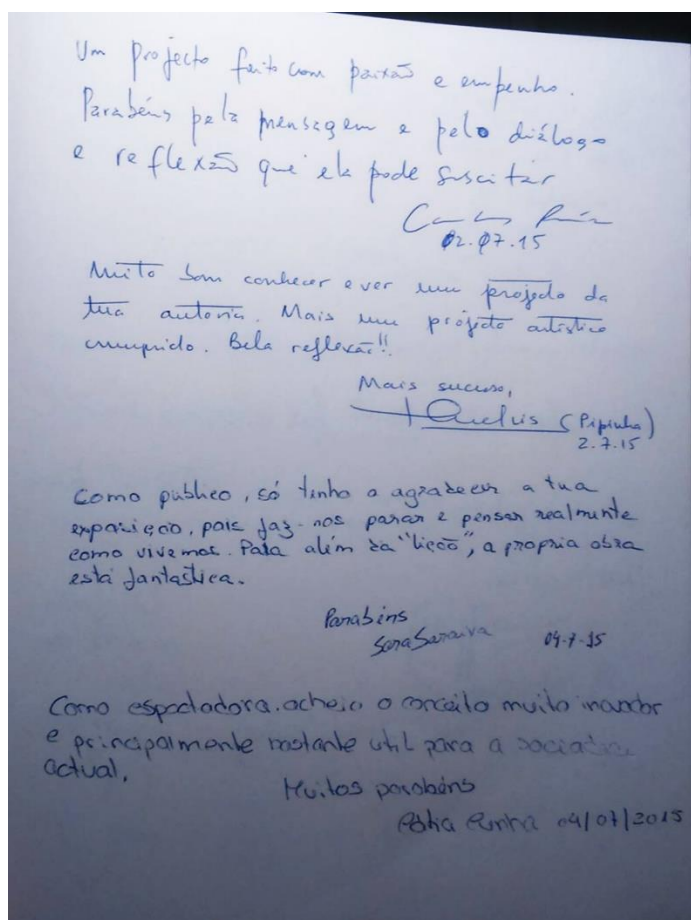 Um projecto feito com paixão e empenho.
Parabéns pela mensagem e pelo diálogo
e reflexão que ela pode suscitar
02.07.15
Muito bom conhecer e ver um projeto da
tua autoria. Mais um projeto artístico
cumprido. Bela reflexão!!
Mais sucesso,
(Pipinha)
2.7.15
Como público, só tenho a agradecer a tua
exposição, pois faz-nos parar e pensar realmente
como vivemos. Para além da "lição", a propria obra
está fantástica.
Parabéns
Sara Saraiva 04-7-15
Como espectadora, achei o conceito muito inovador
e principalmente bastante util para a sociedade
actual.
Muitos parabéns
Cunha 04/07/2015